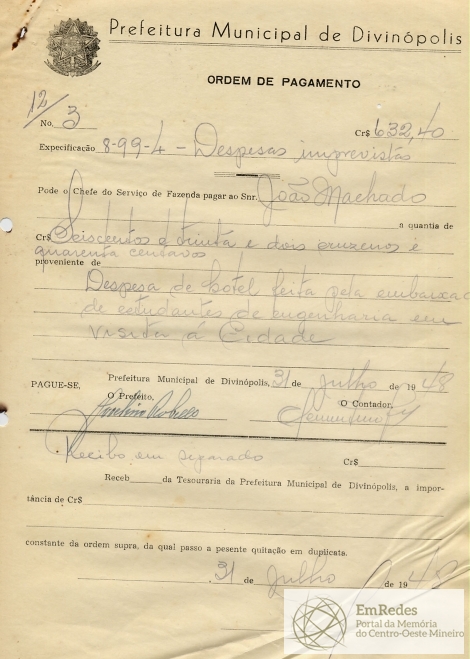 Prefeitura Municipal de Divinópolis
ORDEM DE PAGAMENTO
12/
No. 3 Cr$ 632,40
Expecificação 8-99-4 - Despesas imprevistas
Pode o Chefe do Serviço de Fazenda pagar ao Snr. João Machado
a quantia de
Cr$ Seiscentos e trinta e dois cruzeiros e
quarenta centavos
proveniente de
Despesa de hotel feita pela embaixada
de estudantes de engenharia em
visita á Cidade
Prefeitura Municipal de Divinópolis, 31 de julho de 1948
PAGUE-SE,
O Prefeito, O Contador,
Recibo em separado
Cr$
Receb da Tesouraria da Prefeitura Municipal de Divinópolis, a impor-
tância de Cr$
constante da ordem supra, da qual passo a pesente quitação em duplicata.
31 de Julho de 1948
EmRedes
Portal da Memória
do Centro-Oeste Mineiro